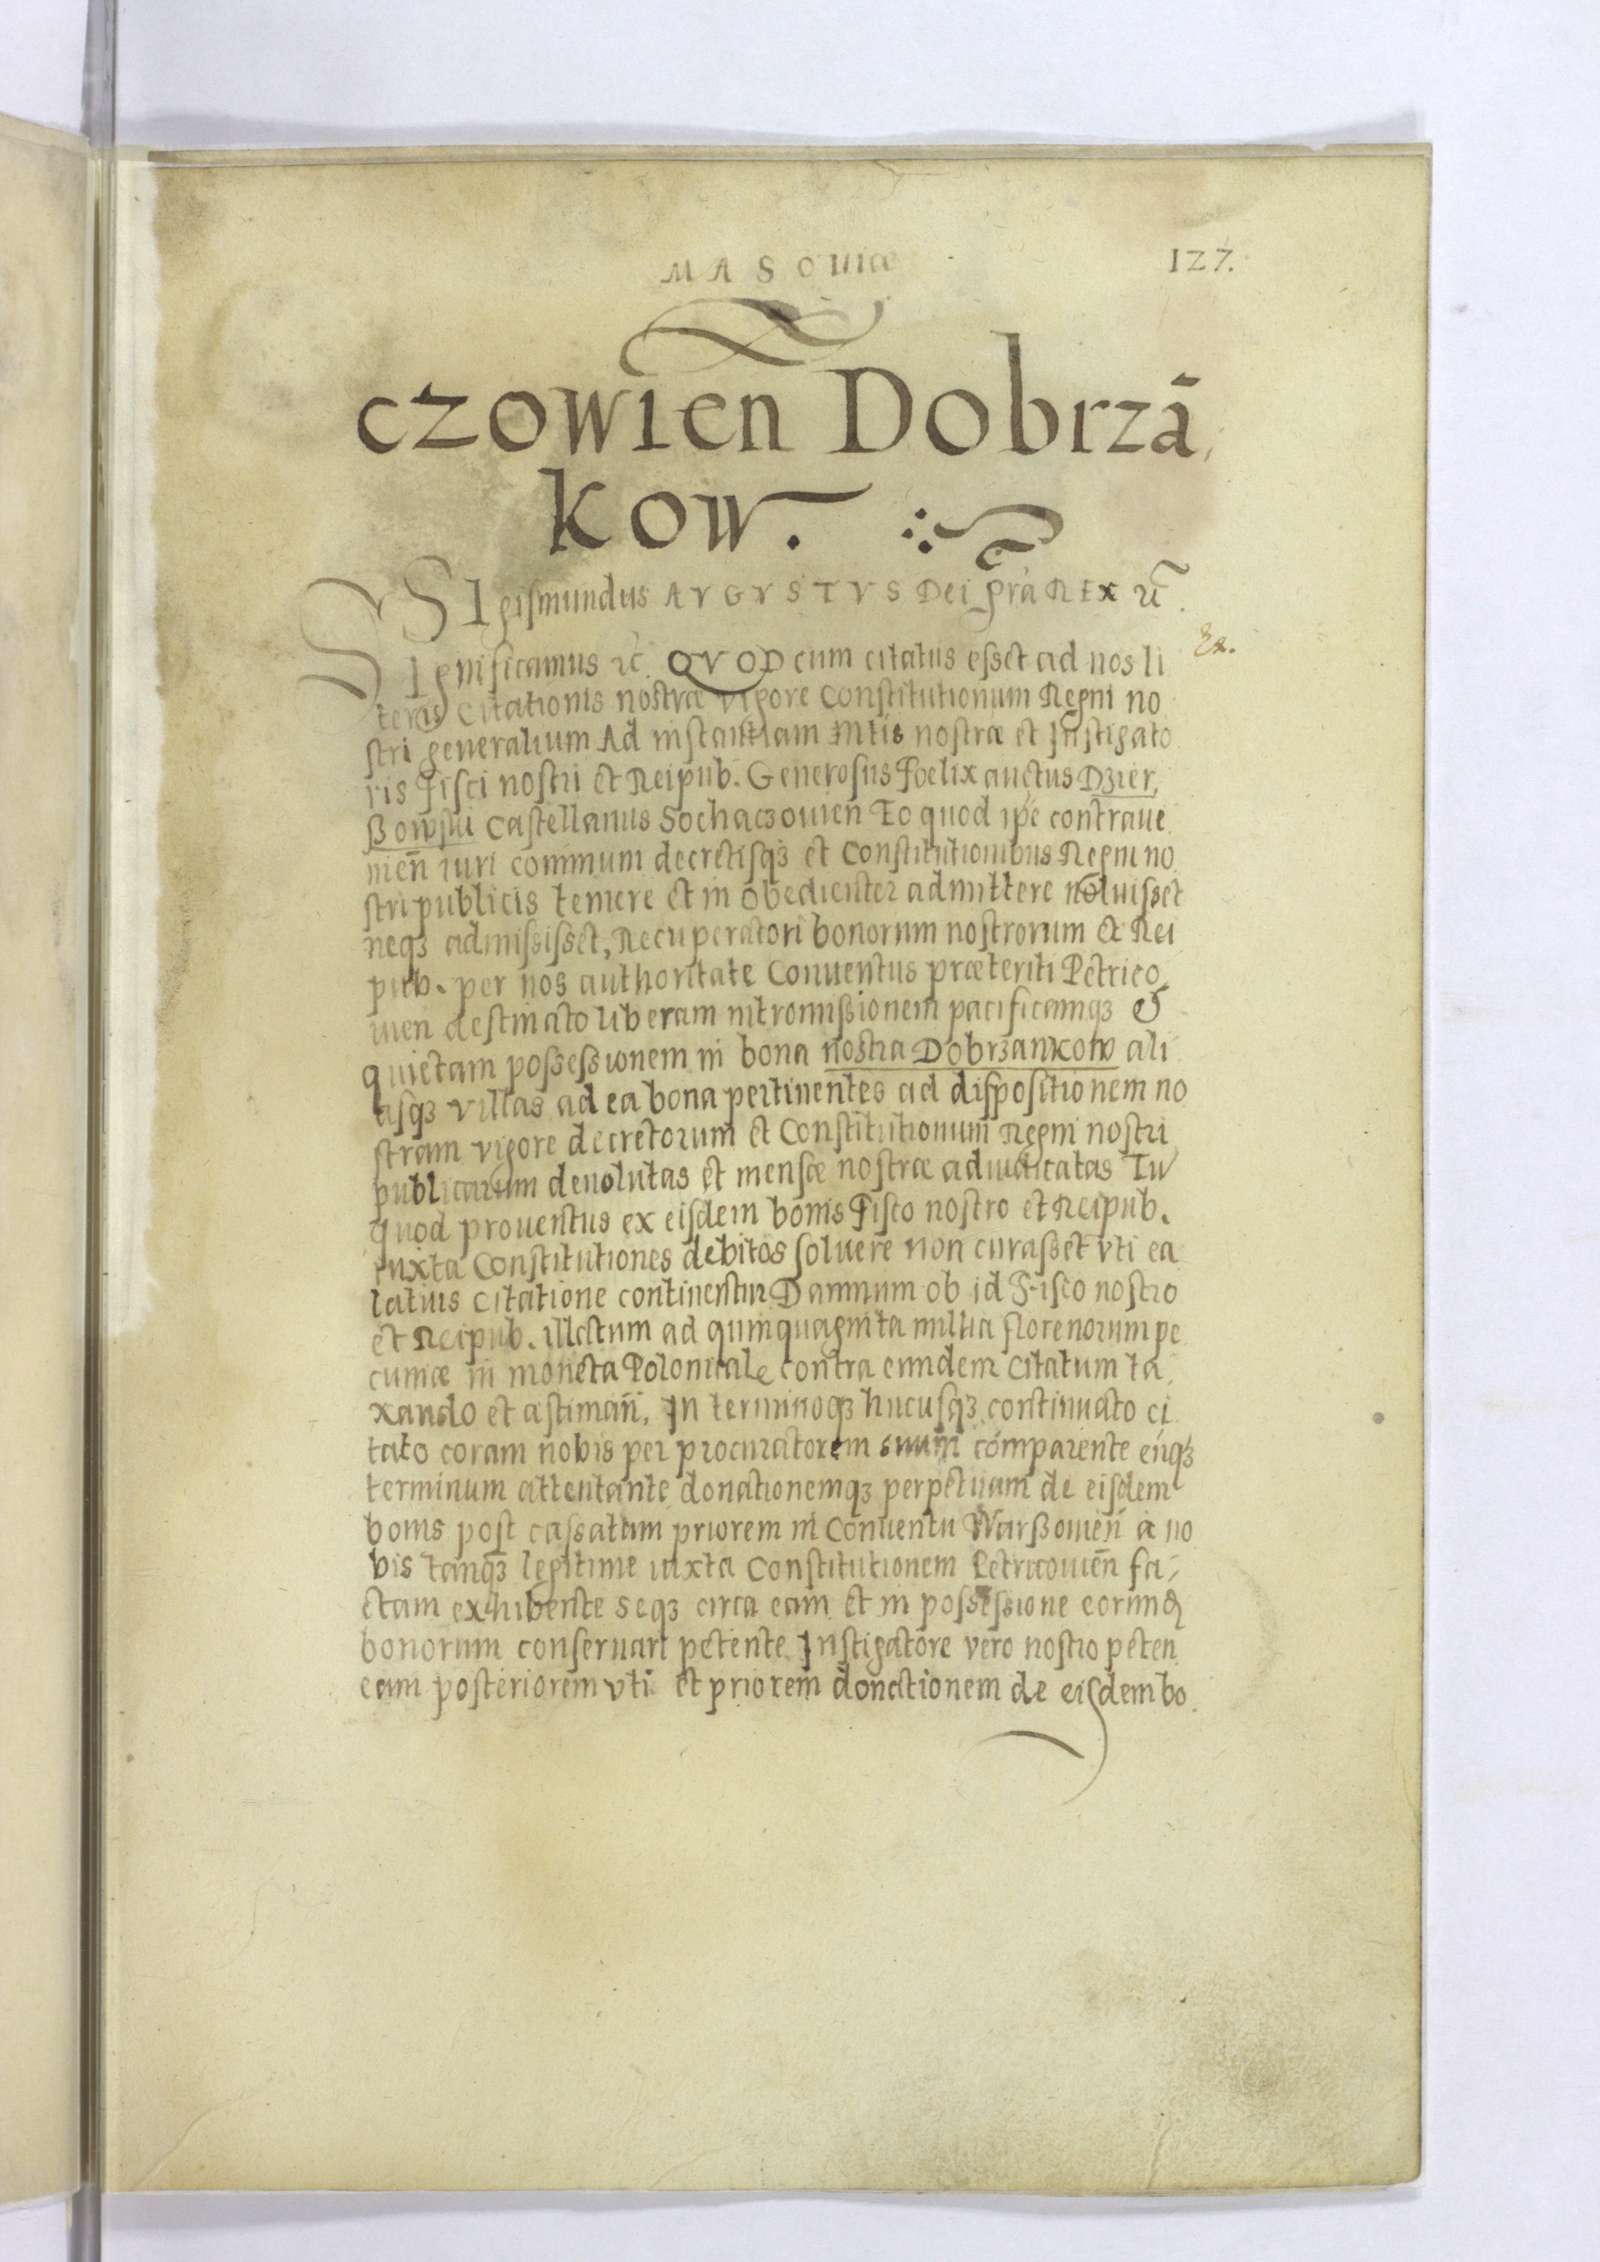 MASOuiæ
127.
czowien Dobrzā,
kow.
SIgismundus AVGVSTVS Dei gra REx
SIgnificamus ꝛc. QVOD cum citatus esset ad nos li
teris citationis nostræ vigore Constitutionum Regni no
stri generalium Ad instantiam Mtis nostræ et Instigato
ris Fisci nostri et Reipub. Generosus Foelix auctus Dzier,
ßowski Castellanus Sochaczouien Eo quod ipē contraue
nieñ iuri communi decretisqꝫ et Constitutionibus Regni no
stri publicis temere et in obedienter admittere noluisset
neqꝫ admississet, Recuperatori bonorum nostrorum et Rei
pub. per nos authoritate Conuentus præteriti Petrico,
uien destinato liberam intromissionem pacificamqꝫ &
quietam possessionem in bona nostra Dobrzankow ali
asqꝫ villas ad ea bona pertinentes ad dispositionem no
stram vigore decretorum et Constitutionum Regni nostri
publicarum deuolutas et mensæ nostræ adiudicatas Tu
quod prouentus ex eisdem bonis Fisco nostro et Reipub.
iuxta Constitutiones debitos soluere non curasset vti ea
latius citatione continentur Damnum ob id Fisco nostro
et Reipub. illatum ad quinquaginta millia florenorum pe
cuniæ in moneta Polonicale contra eundem Citatum ta,
xando et æstimañ, In terminoqꝫ hucusqꝫ continuato ci
tato coram nobis per procuratorem suum comparente eūqꝫ
terminum attentante donationemqꝫ perpetuam de eisdem
bonis post cassatam priorem in Conuentu Warßouień a no
bis tanqꝫ legitime iuxta Constitutionem Petricouień fa,
ctam exhibente seqꝫ circa eam et in possessione eorund
bonorum conseruari petente Instigatore vero nostro peten
eam posteriorem vti et priorem donationem de eisdem bo